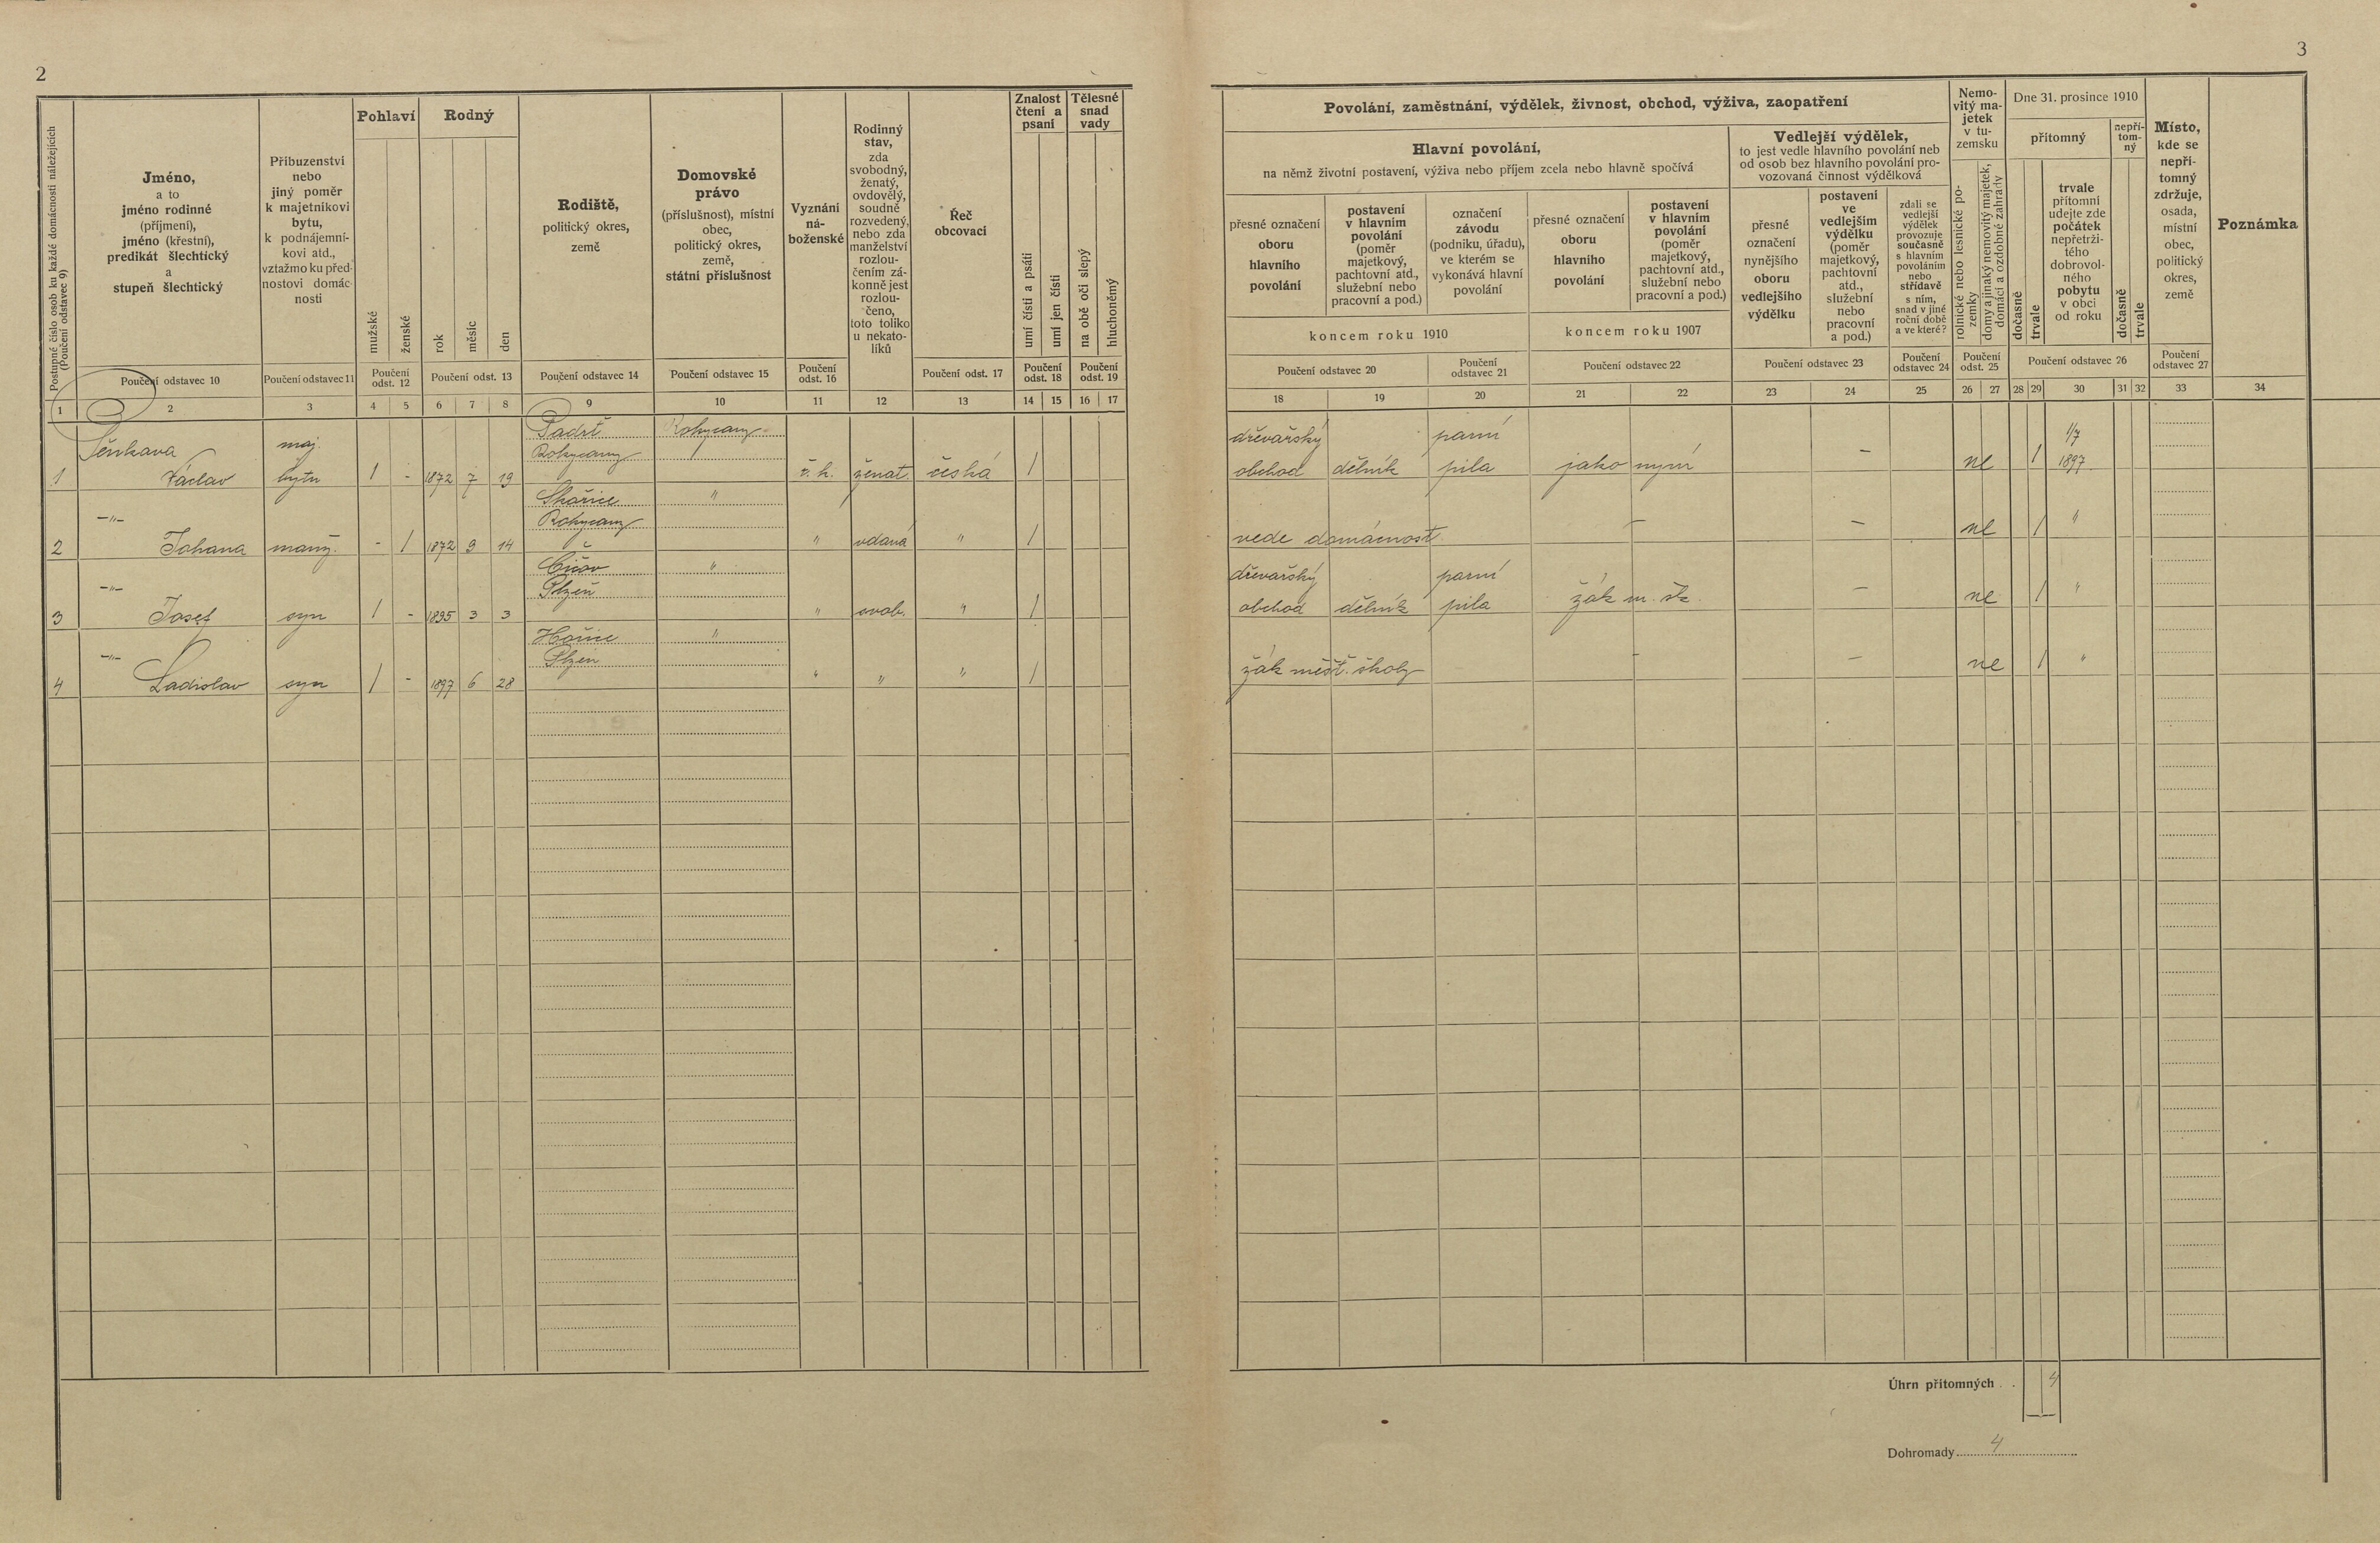 2
3
Postupné číslo osob ku každé domácnosti náležejících
(Poučení odstavec 9)
Jméno,
a to
jméno rodinné
(příjmení),
jméno (křestní),
predikát šlechtický
a
stupeň šlechtický
Příbuzenství
nebo
jiný poměr
k majetníkovi
bytu,
k podnájemní-
kovi atd.,
vztažmo ku před-
nostovi domác-
nosti
Pohlaví
mužské
ženské
Rodný
rok
měsíc
den
Rodiště,
politický okres,
země
Domovské
právo
(příslušnost), místní
obec,
politický okres,
země,
státní příslušnost
Vyznání
ná-
boženské
Rodinný
stav,
zda
svobodný,
ženatý,
ovdovělý,
soudně
rozvedený,
nebo zda
manželství
rozlou-
čením zá-
konně jest
rozlou-
čeno,
toto toliko
u nekato-
líků
Řeč
obcovací
Znalost
čtení a
psaní
umí čísti a psáti
umí jen čísti
Tělesné
snad
vady
na obě oči slepý
hluchoněmý
Poučení odstavec 10
Poučení odstavec 11
Poučení
odst. 12
Poučení odst. 13
Poučení odstavec 14
Poučení odstavec 15
Poučení
odst. 16
Poučení odst. 17
Poučení
odst. 18
Poučení
odst. 19
1 2 3 4 5 6 7 8 9 10 11 12 13 14 15 16 17
Povolání, zaměstnání, výdělek, živnost, obchod, výživa, zaopatření
Hlavní povolání,
na němž životní postavení, výživa nebo příjem zcela nebo hlavně spočívá
přesné označení
oboru
hlavního
povolání
postavení
v hlavním
povolání
(poměr
majetkový,
pachtovní atd.,
služební nebo
pracovní a pod.)
označení
závodu
(podniku, úřadu),
ve kterém se
vykonává hlavní
povolání
přesné označení
oboru
hlavního
povolání
postavení
v hlavním
povolání
(poměr
majetkový,
pachtovní atd.,
služební nebo
pracovní a pod.)
koncem roku 1910
koncem roku 1907
Vedlejší výdělek,
to jest vedle hlavního povolání neb
od osob bez hlavního povolání pro-
vozovaná činnost výdělková
přesné
označení
nynějšího
oboru
vedlejšího
výdělku
postavení
ve
vedlejším
výdělku
(poměr
majetkový,
pachtovní
atd.,
služební
nebo
pracovní
a pod.)
zdali se
vedlejší
výdělek
provozuje
současně
s hlavním
povoláním
nebo
střídavě
s ním,
snad v jiné
roční době
a ve které?
Nemo-
vitý ma-
jetek
v tu-
zemsku
rolnické nebo lesnické po-
zemky
domy a jinaký nemovitý majetek,
domácí a ozdobné zahrady
Dne 31. prosince 1910
přítomný
nepří-
tom-
ný
dočasně
trvale
trvale
přítomní
udejte zde
počátek
nepřetrži-
tého
dobrovol-
ného
pobytu
v obci
od roku
dočasně
trvale
Místo,
kde se
nepří-
tomný
zdržuje,
osada,
místní
obec,
politický
okres,
země
Poznámka
Poučení odstavec 20
Poučení
odstavec 21
Poučení odstavec 22
Poučení odstavec 23
Poučení
odstavec 24
Poučení
odst. 25
Poučení odstavec 26
Poučení
odstavec 27
18 19 20 21 22 23 24 25 26 27 28 29 30 31 32 33 34
maj. Padrť Rokycany dřevařský parní 1/7
Rokycany
1 Václav bytu 1 - 1872 7 19 ř. k. ženat. česká 1 obchod dělník pila jako nyní - ne 1 1897
-„- Skořice "
Rokycany
2 Johana manž. - 1 1872 9 14 " vdaná " 1 vede domácnost - - ne 1 "
-„- " dřevařský parní
Plzeň
3 Josef syn 1 - 1895 3 3 " svob. " 1 obchod dělník pila žák m. šk. - ne 1 "
-„- "
Plzeň
4 Ladislav syn 1 - 1897 6 28 " " " 1 žák měšť. školy - - ne 1 "
Úhrn přítomných . . 4
Dohromady 4